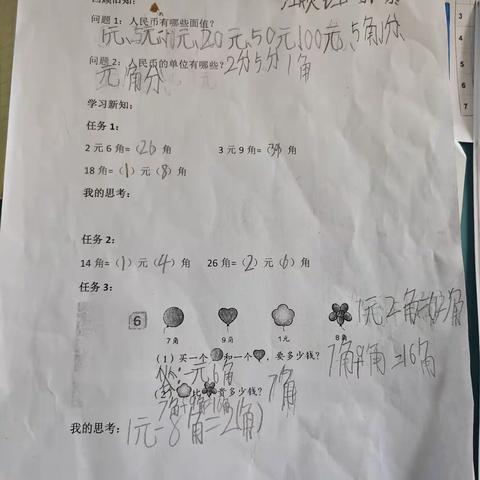 问题 1：人民币有哪些面值？
1元、5元、10元、20元、50元、100元、5角、1分、
问题 2：人民币的单位有哪些？2分5分1角
元 角 分
学习新知：
任务 1：
2 元 6 角=（26）角 3 元 9 角=（39）角
18 角=（1）元（8）角
我的思考：
任务 2：
14 角=（1）元（4）角 26 角=（2）元（6）角
任务 3：
6
7角 9角 1元 8角
（1）买一个和一个，要多少钱？
7角+9角=16角
一元6角
贵多少钱？
我的思考：1元-8角=2(角)